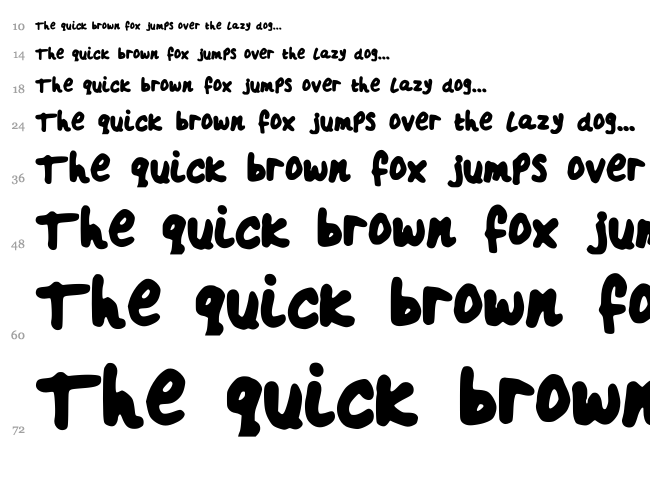 10 The quick brown fox jumps over the Lazy dog...
14 The quick brown fox jumps over the Lazy dog...
18 The quick brown fox jumps over the Lazy dog...
24 The quick brown fox jumps over the Lazy dog...
36 The quick brown fox jumps over
48 The quick brown fox jum
60 The quick brown fo
72 The quick brown